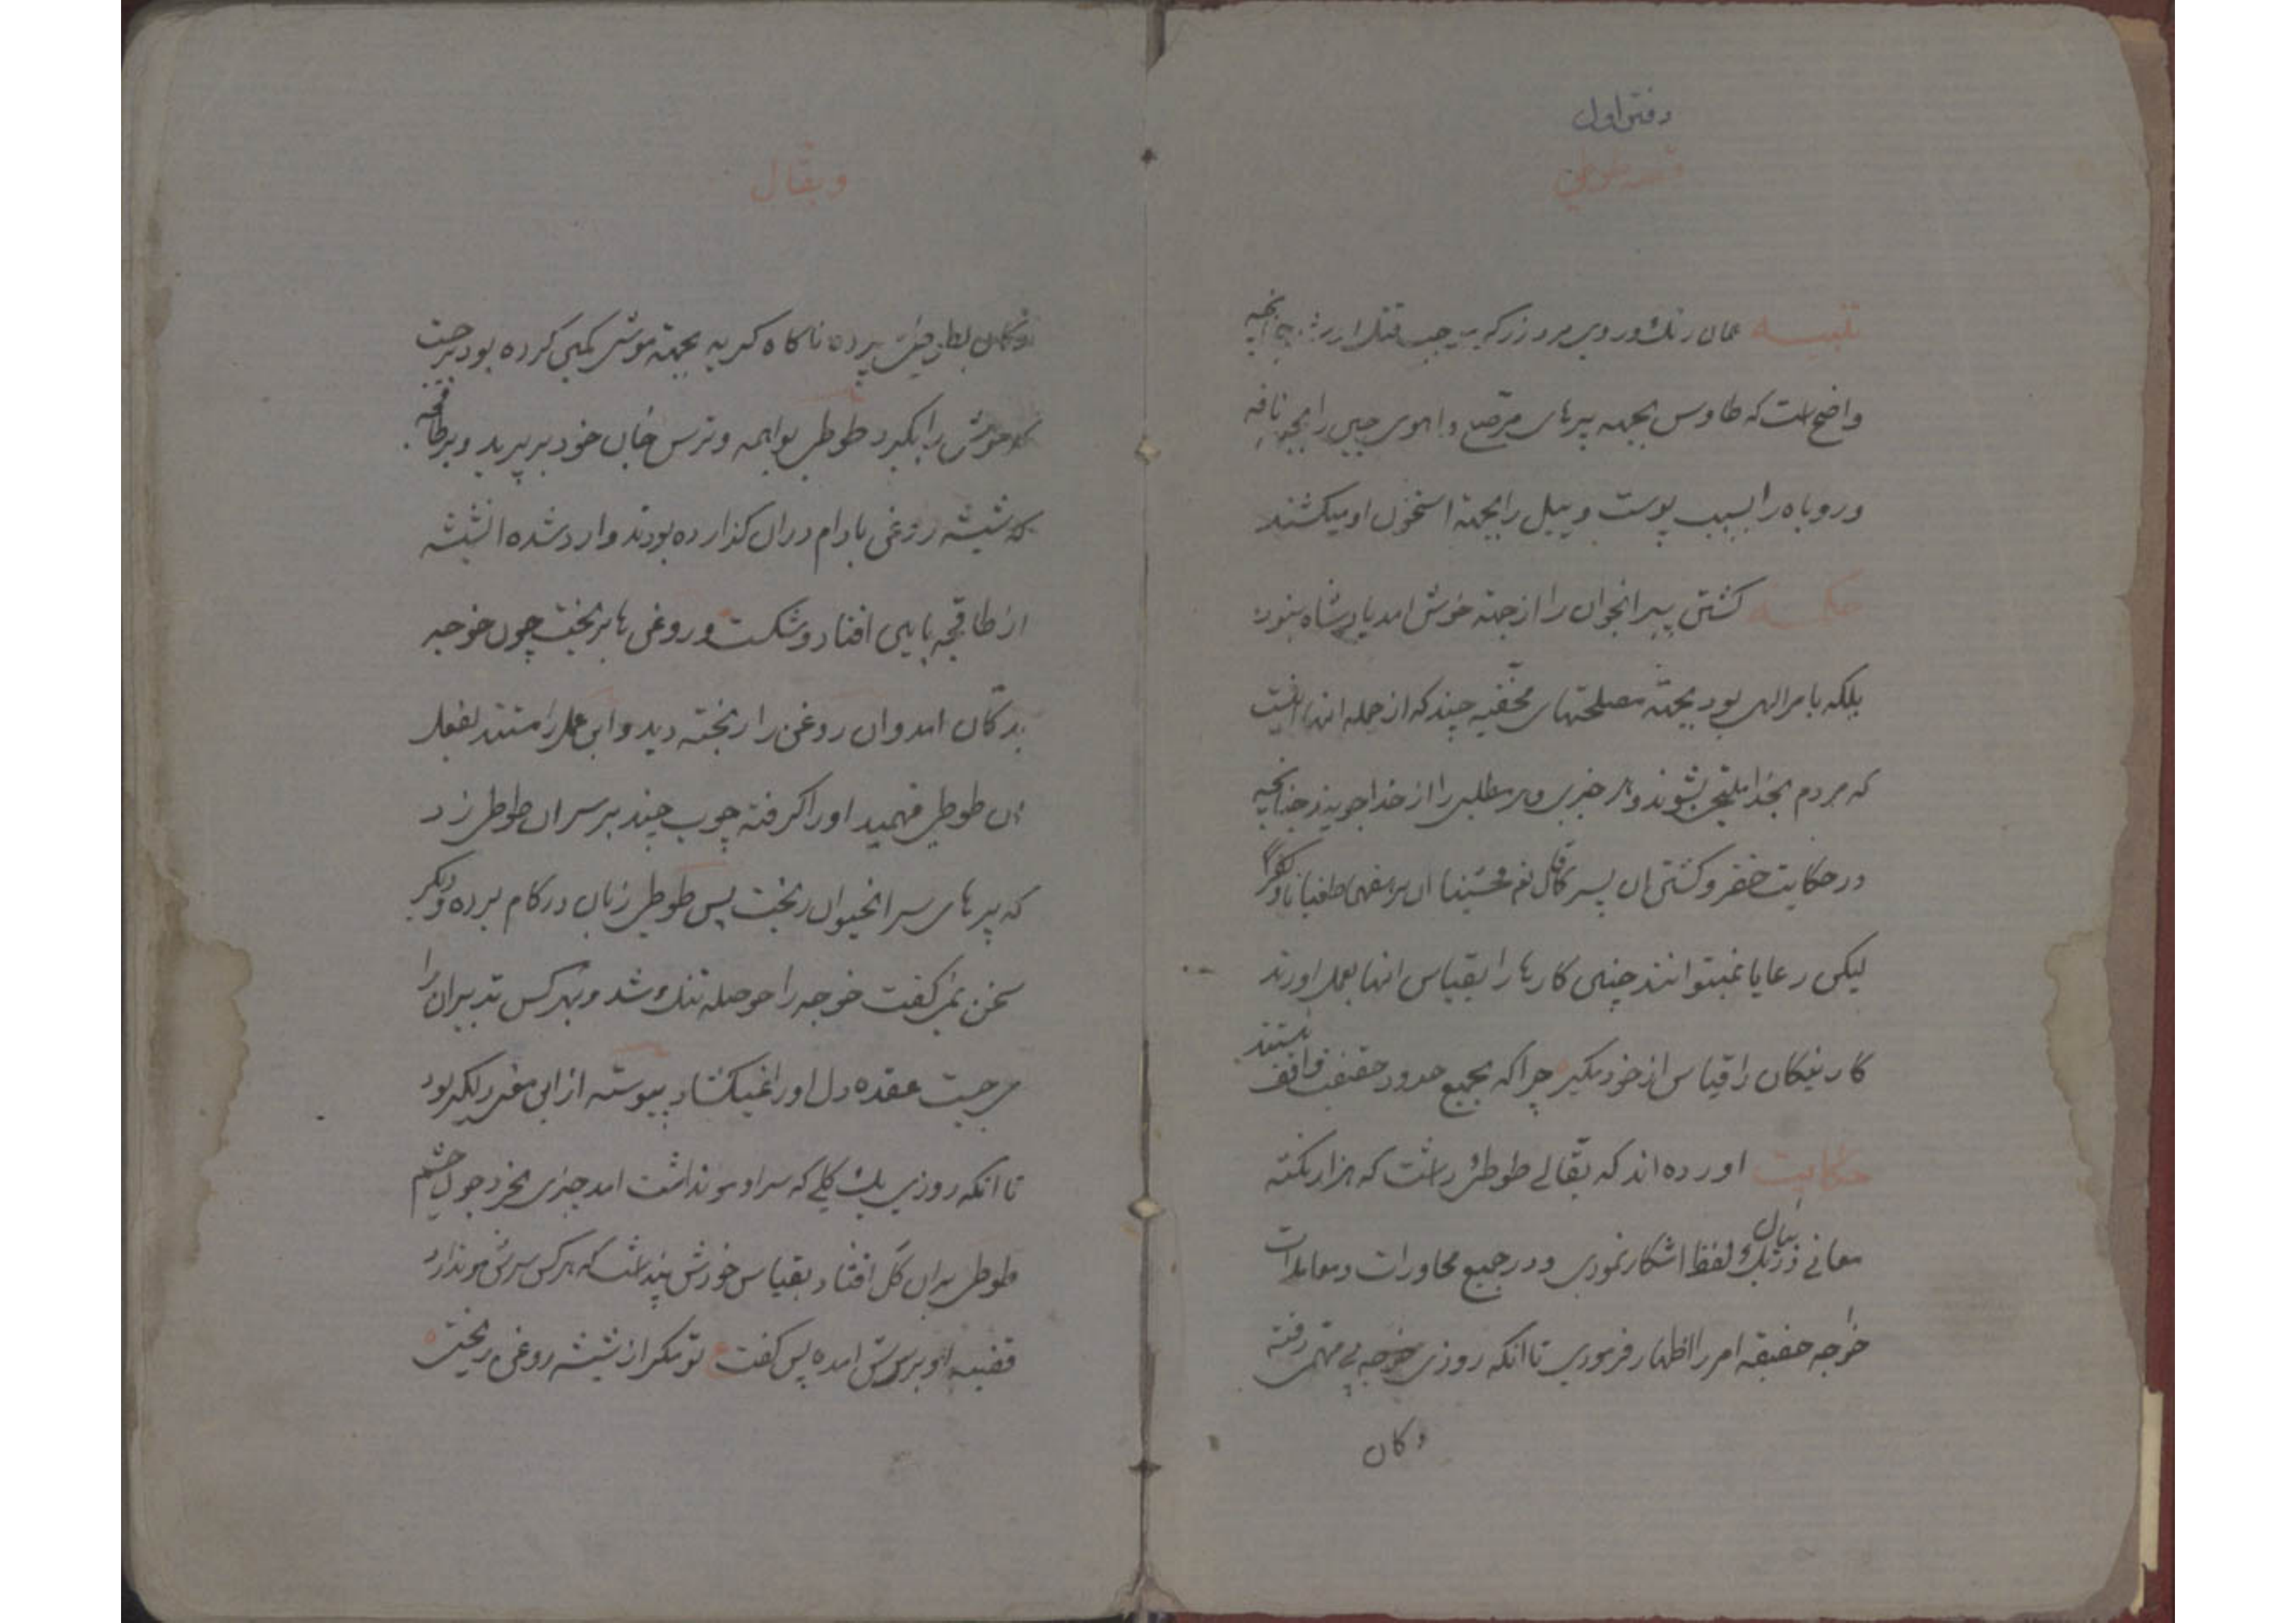 دفتر اول
قصه طوطی
تنبیه همان رنگ و روی مرد زرکر موجب قتل او شد چنانچه
واضح است که طاوس بجهه پرهای مرصع و اهوی چین را بجهه نافه
و روباه را بسبب پوست و پیل را بجهة استخوان او میکشند
حکمه کشتن پیر انجوان را از جهة خوش امد پادشاه نبود
بلکه بامر الهی بود بجهة مصلحتهای مخفیه چند که از جمله انها اینست
که مردم بخدا ملتجی بشوند و هر خیری و هر مطلبی را از خدا جویند چنانچه
در حکایت خضر و کشتن ان پسر قال نعم فخشینا ان یرهقهما طغیانا و کفرا
لیکن رعایا نمیتوانند چنین کارها را بقیاس انها بعمل اورند
کار نیکان را قیاس از خود مکیر چرا که بجمیع حدود حقیقت واقف هستند
حکایت اورده اند که بقالے طوطئ داشت که هزار نکته
معانے در یک لفظ بیان اشکار نمودی و در جمیع محاورات و معاملات
خواجه حقیقه امر را اظهار فرمودی تا انکه روزی خوجه پی مهمی رفته
دکان
و بقّال
دکان بطوطی سپرده ناکاه کربه بجهة موش کمین کرده بود برجست
که موش را بکیرد طوطی بواهمه و ترس جان خود بر پرید و بر طاقچه
که شیشه روغن بادام در ان کذارده بودند وارد شده انشیشه
از طاقچه پایین افتاد و شکست و روغن ها بریخت چون خوجه
بدکان امد و ان روغن را ریخته دید و این عمل را مستند بفعل
ان طوطی فهمید او را کرفته چوب چند بر سر ان طوطی زد
که پرهای سر انحیوان ریخت پس طوطی زبان در کام برده و دیکر
سخن نمی کفت خوجه را حوصله تنک شد و بهر کس تدبیر ان را
می جست عقده دل او را نمیکشاد پیوسته از این معنی دلکیر بود
تا انکه روزی یک کلے که سر او مو نداشت امد چیزی بخرد چون چشم
طوطی بر ان کل افتاد بقیاس خودش پنداشت که هر کس سرش مو ندارد
قضیه او بر سرش امده پس کفت ع تو مکر از شیشه روغن ریختی